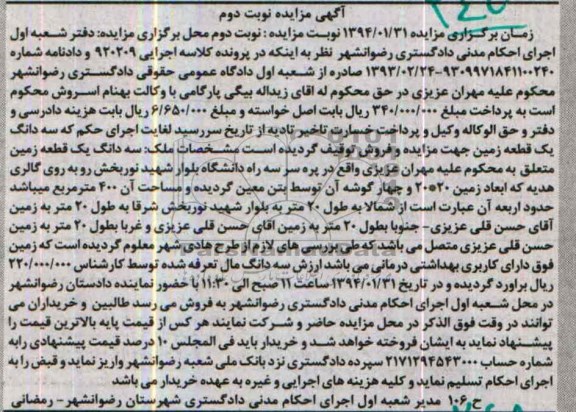 آگهی مزایده نوبت دوم
زمان برگزاری مزایده ۱۳۹۴/۰۱/۳۱ نوبت مزایده : نوبت دوم محل برگزاری مزایده: دفتر شعبه اول
اجرای احکام مدنی دادگستری رضوانشهر نظر به اینکه در پرونده کلاسه اجرایی ۹۲۰۲۰۹ و دادنامه شماره
۹۳۰۹۹۷۱۸۴۱۱۰۰۲۴۰-۱۳۹۳/۰۲/۲۴ صادره از شعبه اول دادگاه عمومی حقوقی دادگستری رضوانشهر
محکوم علیه مهران عزیزی در حق محکوم له اقای زیداله بیگی پارگامی با وکالت بهنام اسروش محکوم
است به پرداخت مبلغ ۳۴۰/۰۰۰/۰۰۰ ریال بابت اصل خواسته و مبلغ ۶/۶۵۰/۰۰۰ ریال بابت هزینه دادرسی و
دفتر و حق الوکاله وکیل و پرداخت خسارت تاخیر تادیه از تاریخ سررسید لغایت اجرای حکم که سه دانگ
یک قطعه زمین جهت مزایده و فروش توقیف گردیده است مشخصات ملک: سه دانگ یک قطعه زمین
متعلق به محکوم علیه مهران عزیزی واقع در پره سر سه راه دانشگاه بلوار شهید نوربخش رو به روی گالری
هدیه که ابعاد زمین ۲۰*۲۰ و چهار گوشه آن توسط بتن معین گردیده و مساحت آن ۴۰۰ مترمربع میباشد
حدود اربعه آن عبارت است از شمالا به طول ۲۰ متر به بلوار شهید نوربخش شرقا به طول ۲۰ متر به زمین
آقای حسن قلی عزیزی- جنوبا بطول ۲۰ متر به زمین اقای حسن قلی عزیزی و غربا بطول ۲۰ متر به زمین
حسن قلی عزیزی متصل می باشد که طی بررسی های لازم از طرح هادی شهر معلوم گردیده است که زمین
فوق دارای کاربری بهداشتی درمانی می باشد ارزش سه دانگ مال تعرفه شده توسط کارشناس ۲۲۰/۰۰۰/۰۰۰
ریال براورد گردیده و در تاریخ ۱۳۹۴/۰۱/۳۱ ساعت ۱۱ صبح الی ۱۱:۳۰ با حضور نماینده دادستان رضوانشهر
در محل شعبه اول اجرای احکام مدنی دادگستری رضوانشهر به فروش می رسد طالبین و خریداران می
توانند در وقت فوق الذکر در محل مزایده حاضر و شرکت نمایند هر کس از قیمت پایه بالاترین قیمت را
پیشنهاد نماید به ایشان فروخته خواهد شد و خریدار باید فی المجلس ۱۰ درصد قیمت پیشنهادی رابه
شماره حساب ۲۱۷۱۲۹۴۵۴۳۰۰۰ سپرده دادگستری نزد بانک ملی شعبه رضوانشهر واریز نماید و قبض را به
اجرای احکام تسلیم نماید و کلیه هزینه های اجرایی و غیره به عهده خریدار می باشد
ح ۱۰۶ مدیر شعبه اول اجرای احکام مدنی دادگستری شهرستان رضوانشهر - رمضانی